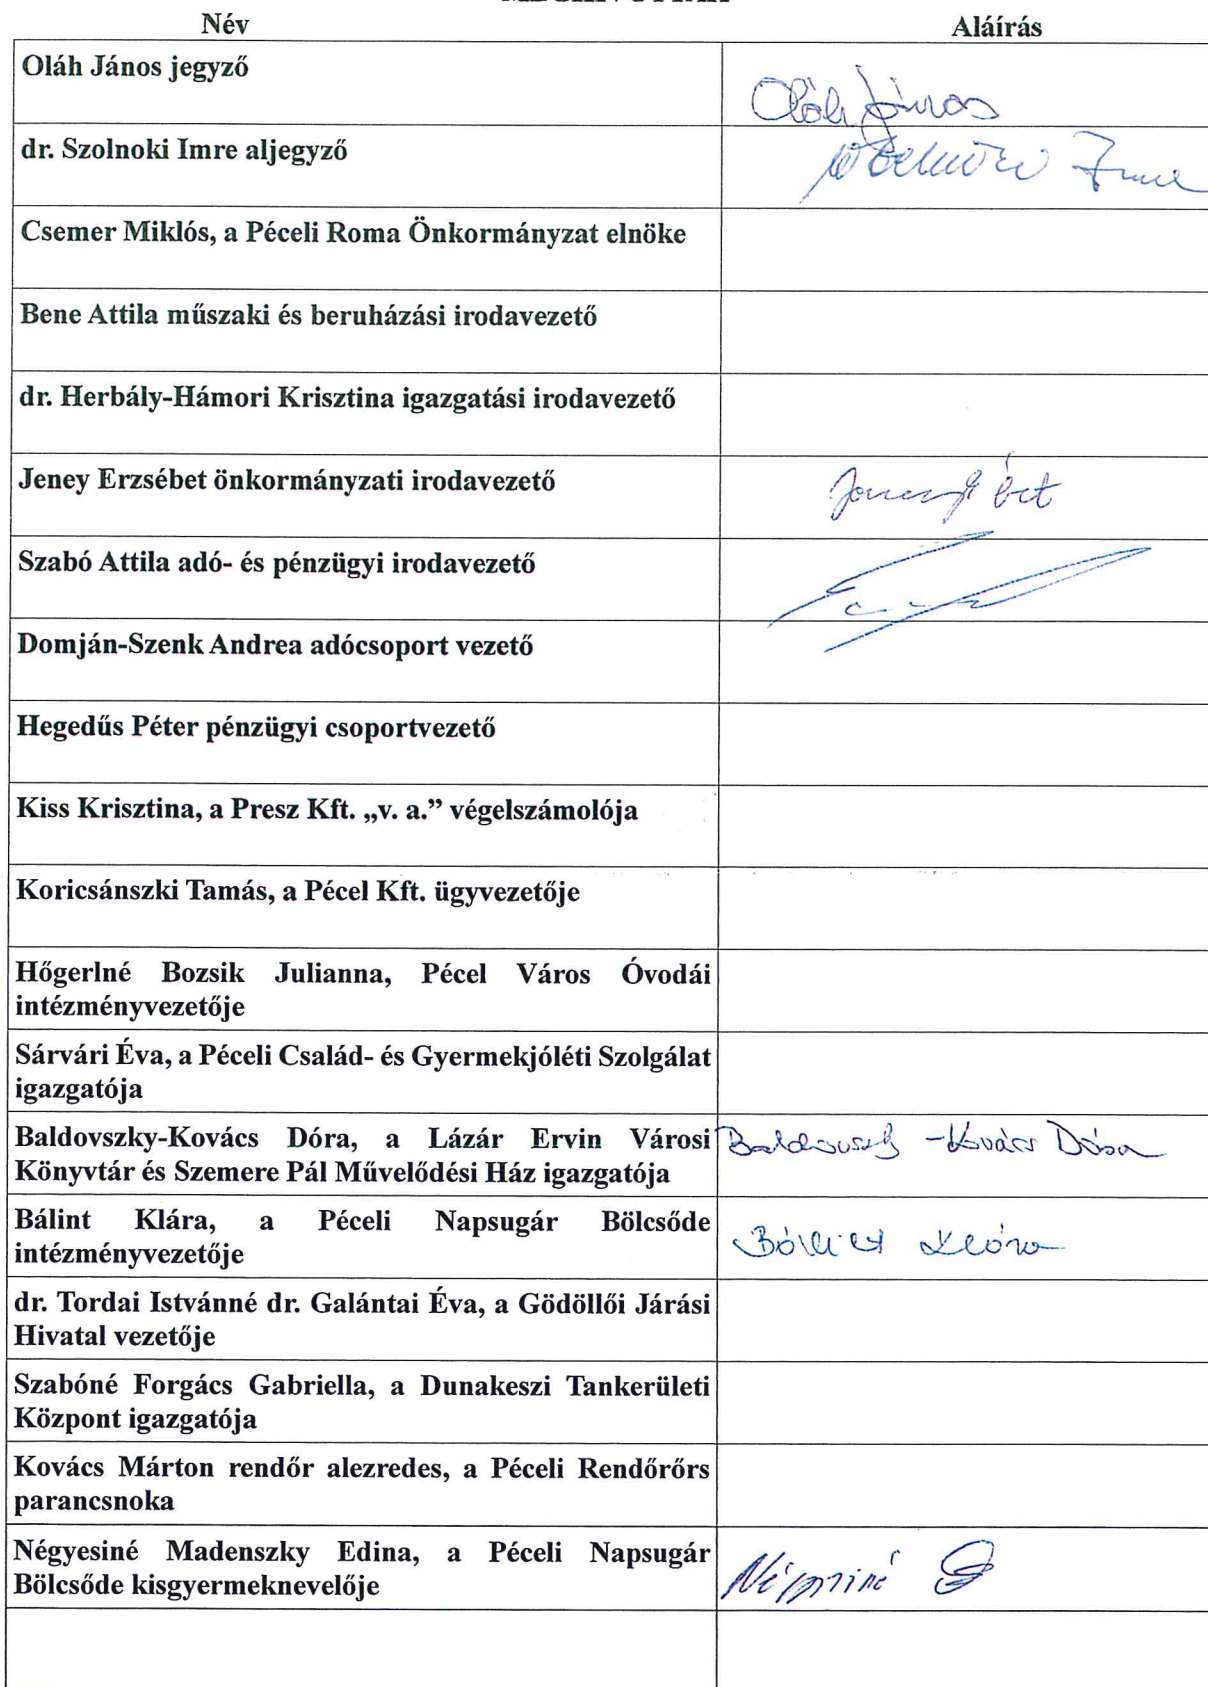 Név Aláírás
Oláh János jegyző
Oláh János
dr. Szolnoki Imre aljegyző
Imre
Csemer Miklós, a Péceli Roma Önkormányzat elnöke
Bene Attila műszaki és beruházási irodavezető
dr. Herbály-Hámori Krisztina igazgatási irodavezető
Jeney Erzsébet önkormányzati irodavezető
Szabó Attila adó- és pénzügyi irodavezető
Domján-Szenk Andrea adócsoport vezető
Hegedűs Péter pénzügyi csoportvezető
Kiss Krisztina, a Presz Kft. „v. a.” végelszámolója
Koricsánszki Tamás, a Pécel Kft. ügyvezetője
Hőgerlné Bozsik Julianna, Pécel Város Óvodái
intézményvezetője
Sárvári Éva, a Péceli Család- és Gyermekjóléti Szolgálat
igazgatója
Baldovszky-Kovács Dóra, a Lázár Ervin Városi
Könyvtár és Szemere Pál Művelődési Ház igazgatója
Baldovszky-Kovács Dóra
Bálint Klára, a Péceli Napsugár Bölcsőde
intézményvezetője
Bálint Klára
dr. Tordai Istvánné dr. Galántai Éva, a Gödöllői Járási
Hivatal vezetője
Szabóné Forgács Gabriella, a Dunakeszi Tankerületi
Központ igazgatója
Kovács Márton rendőr alezredes, a Péceli Rendőrőrs
parancsnoka
Négyesiné Madenszky Edina, a Péceli Napsugár
Bölcsőde kisgyermeknevelője
Négyesiné